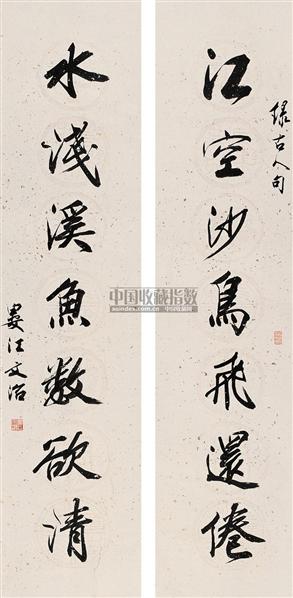 江空沙鳥飛還倦
録古人句
水淺溪魚數欲清
婁江文治
中国收藏指数